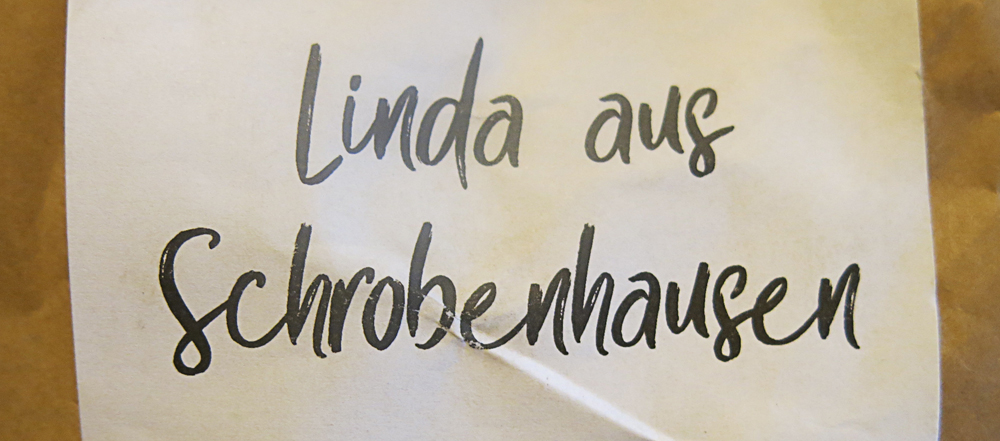 Linda aus
Schrobenhausen